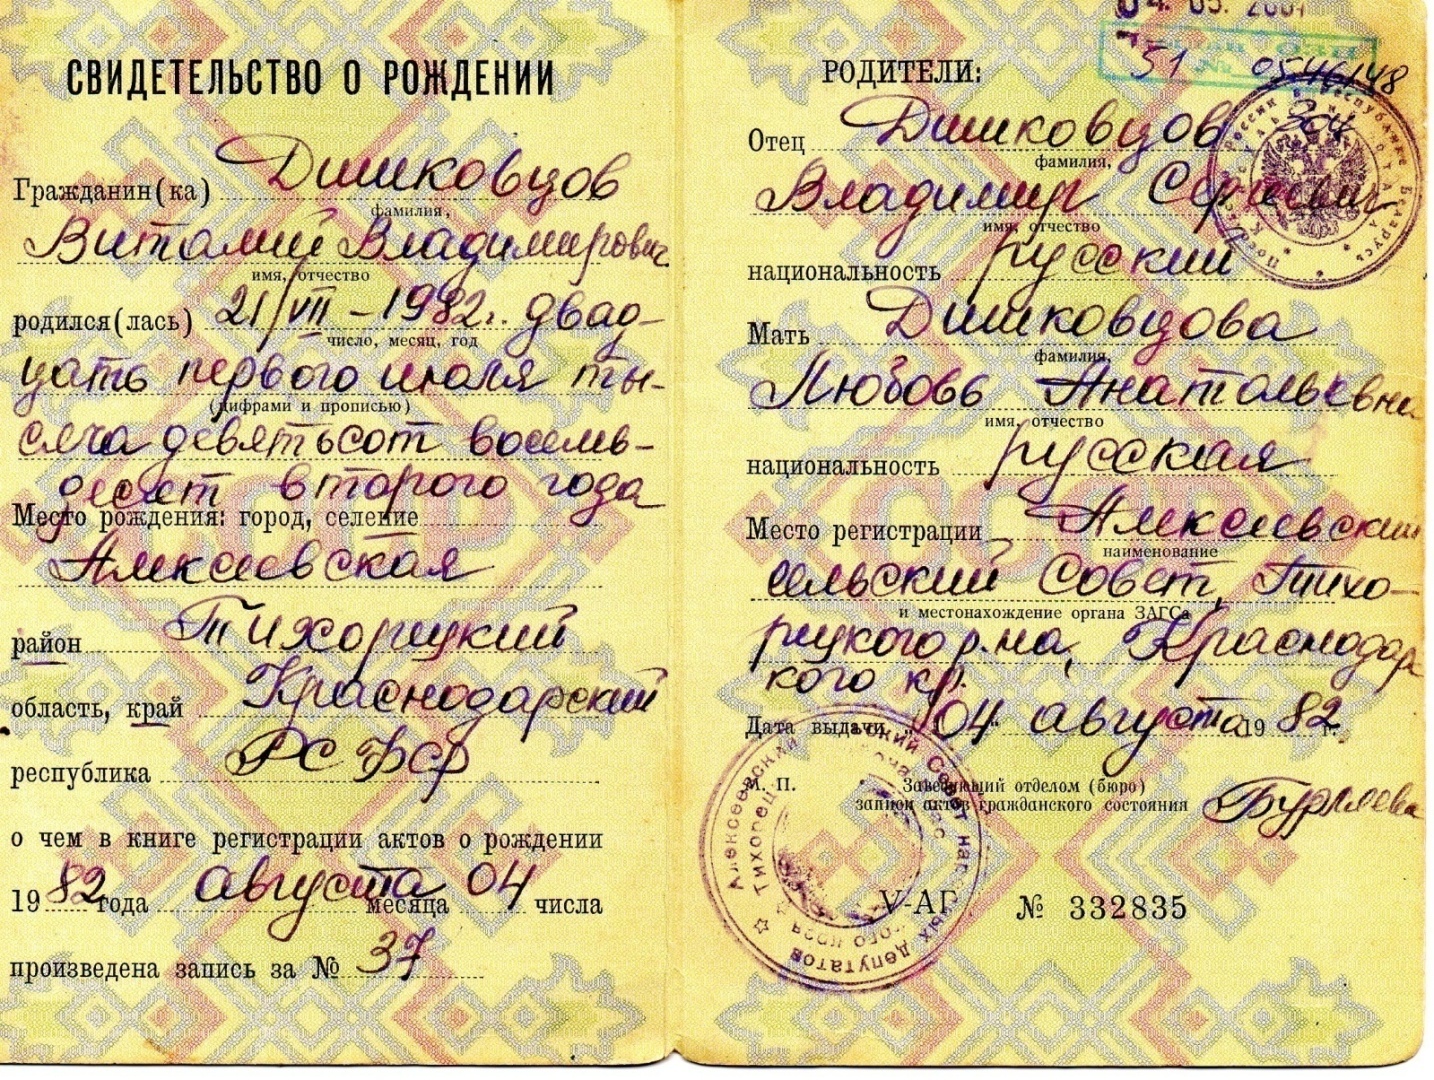 СВИДЕТЕЛЬСТВО О РОЖДЕНИИ
Гражданин(ка) Дишковцов
фамилия,
Виталий Владимирович
имя, отчество
родился(лась) 21/VII – 1982г. двад-
число, месяц, год
цать первого июля ты-
(цифрами и прописью)
сяча девятьсот восемь-
десят второго года
Место рождения: город, селение
Алексеевская
район Тихорецкий
область, край Краснодарский
республика РСФСР
о чем в книге регистрации актов о рождении
1982 года августа месяца 04 числа
произведена запись за № 37
04. 05. 2001
51 № 0546148
304
РОДИТЕЛИ:
Отец Дишковцов
фамилия,
Владимир Сергеевич
имя, отчество
национальность русский
Мать Дишковцова
фамилия,
Любовь Анатольевна
имя, отчество
национальность русская
Место регистрации Алексеевский
наименование
сельский Совет, Тихо-
и местонахождение органа ЗАГСа
рецкого р-на, Краснодарс
кого кр.
Дата выдачи „04" августа 1982 г.
М. П.
Заведующий отделом (бюро)
записи актов гражданского состояния Бурляева
Алексеевский сельский Совет народных депутатов
V-АГ № 332835